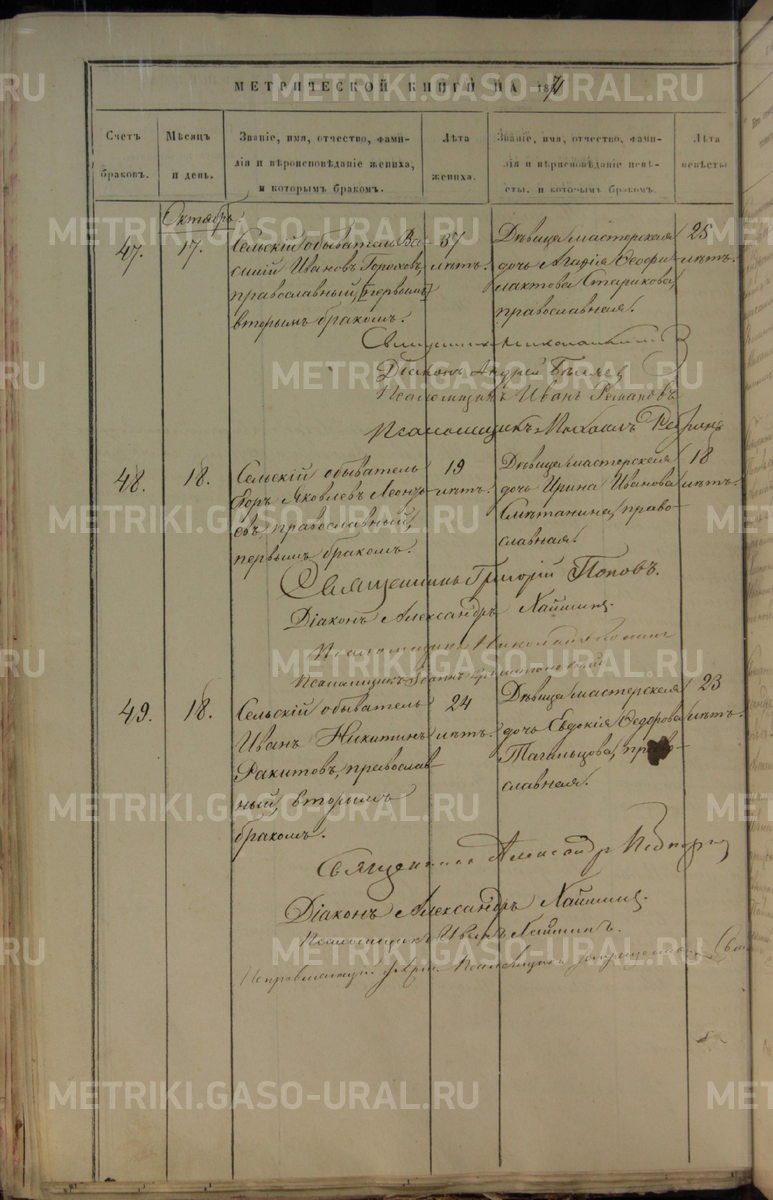 МЕТРИЧЕСКОЙ КНИГИ НА 1871
Счетъ браковъ.
Мѣсяцъ и день.
Званіе, имя, отчество, фами-
лія и вѣроисповѣданіе жениха,
и которымъ бракомъ.
Лѣта жениха.
Званіе, имя, отчество, фами-
лія и вѣроисповѣданіе невѣ-
сты, и которымъ бракомъ.
Лѣта невѣсты
Октябрь.
47. 17.
Сельскій обыватель Ва-
силій Ивановъ Гороховъ,
православный, [первымъ]
вторымъ бракомъ.
37 лѣтъ.
Дѣвица мастерская
дочь Агафія Ѳеофи-
лактова Старикова,
православная.
25 лѣтъ.
Священникъ
Діаконъ Андрей Бѣляев
Псаломщикъ Иванъ Романовъ
Псаломщикъ Михаилъ
48. 18.
Сельскій обыватель
Егоръ Яковлевъ Леонть-
евъ, православный,
первымъ бракомъ.
19 лѣтъ.
Дѣвица мастерская
дочь Ирина Иванова
Сметанина, право-
славная.
18 лѣтъ.
Священникъ Григорій Поповъ.
Діаконъ Александръ Хаймин.
Псаломщикъ Николай
Псаломщикъ Іоаннъ
49. 18.
Сельскій обыватель
Иванъ Никитинъ
Ракитовъ, православ-
ный, вторымъ
бракомъ.
24 лѣтъ.
Дѣвица мастерская
дочь Евдокія Ѳедорова
Тагильцова, право-
славная.
23 лѣтъ.
Священникъ Александр
Діаконъ Александръ Хаймин.
Псаломщикъ Иванъ Хайминъ.
Псаломщикъ
METRIKI.GASO-URAL.RU